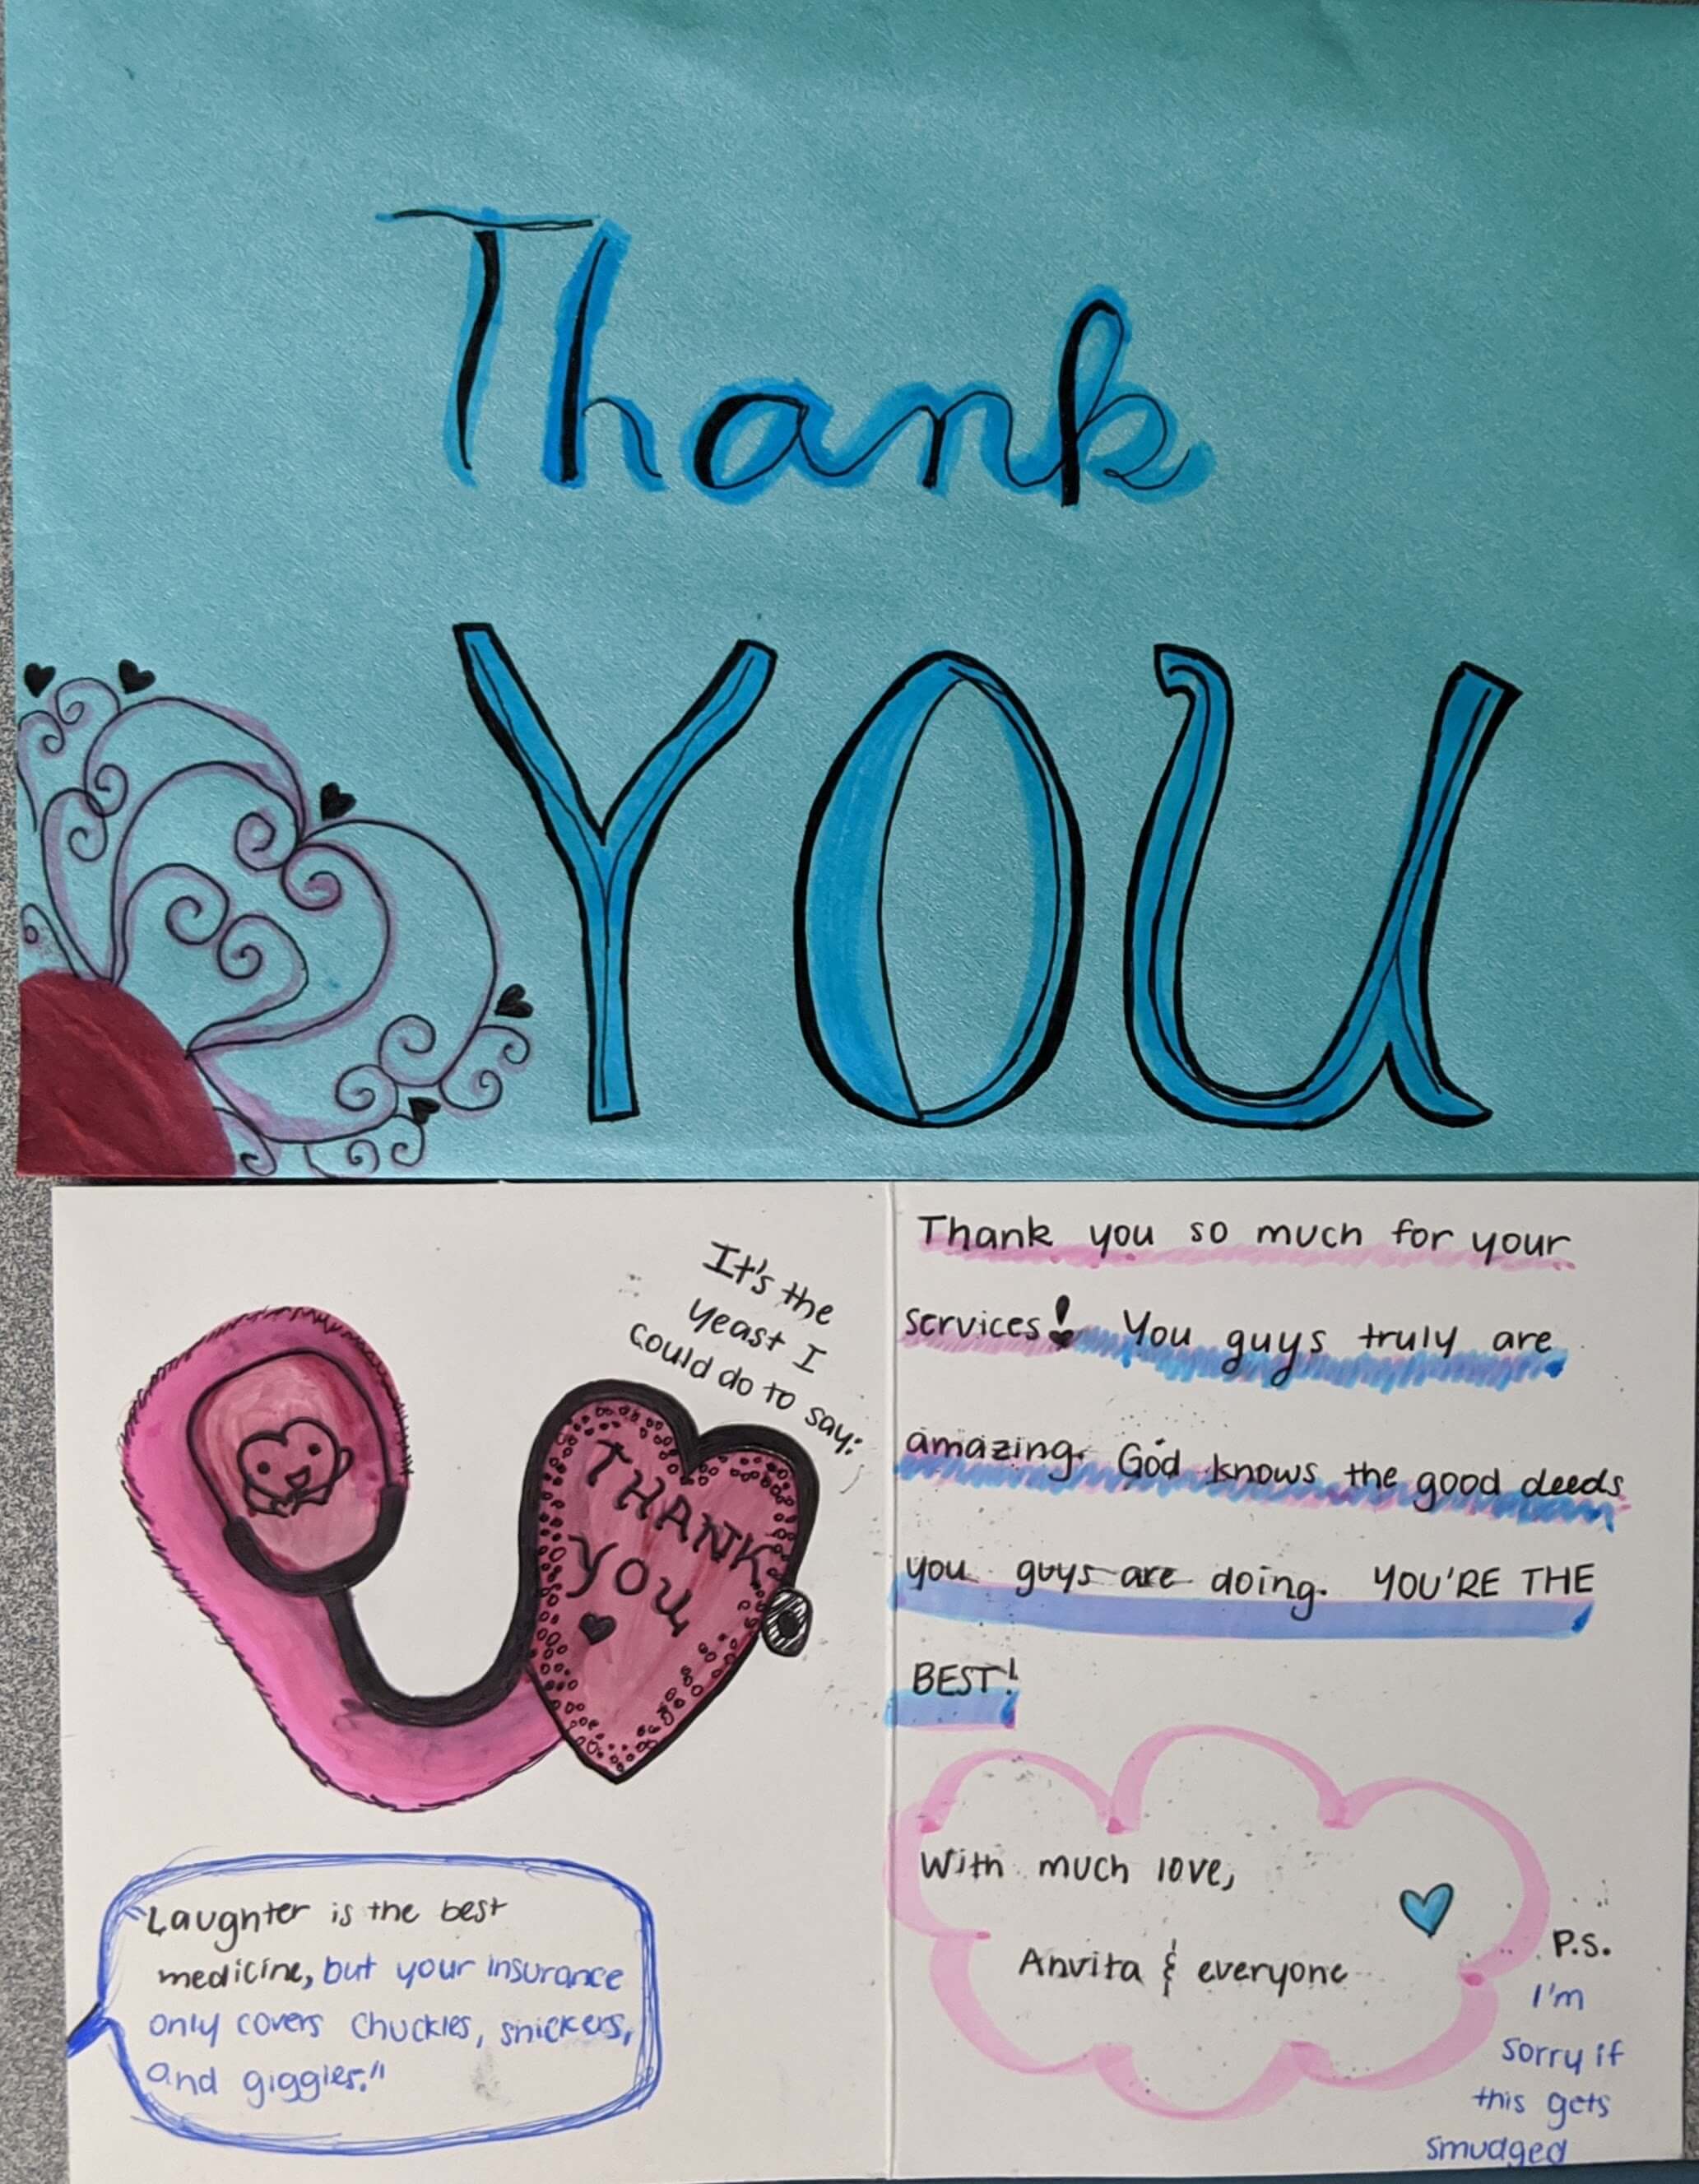 Thank
YOU
It's the
yeast I
could do to say:
THANK
YOU
"Laughter is the best
medicine, but your insurance
only covers chuckles, snickers,
and giggles."
Thank you so much for your
services! You guys truly are
amazing. God knows the good deeds
you guys are doing. YOU'RE THE
BEST!
With much love,
Anvita & everyone
P.S.
I'm
sorry if
this gets
smudged